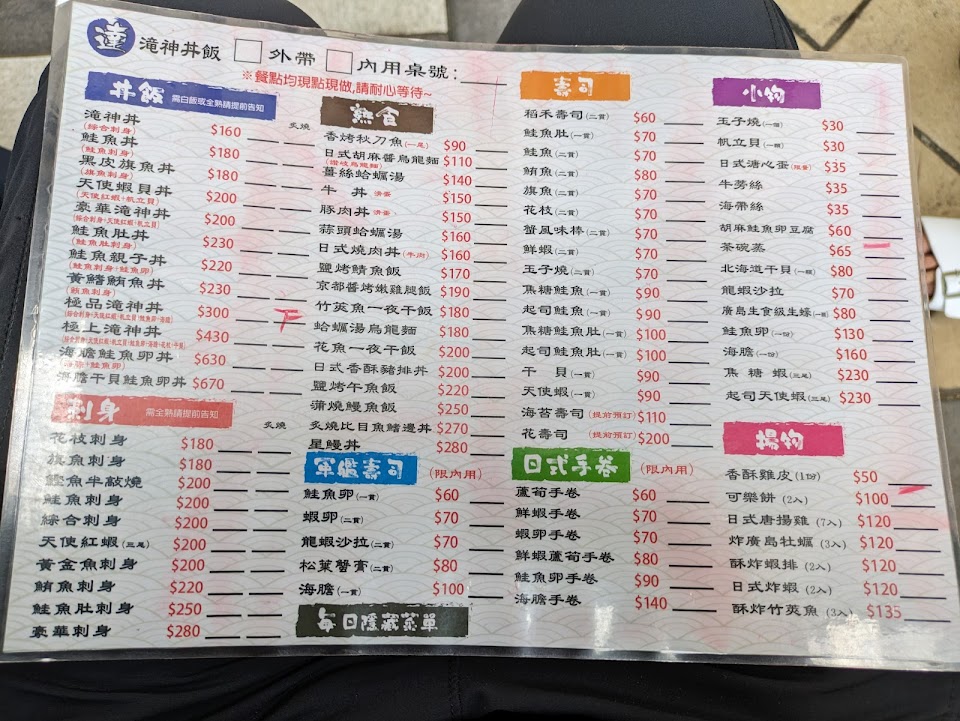 達 滝神丼飯 外帶 內用桌號:
※餐點均現點現做,請耐心等待~
丼飯 需白飯或全熟請提前告知
炙燒
滝神丼 $160
(綜合刺身)
鮭魚丼 $180
(鮭魚刺身)
黑皮旗魚丼 $180
(旗魚刺身)
天使蝦貝丼 $200
(天使紅蝦+帆立貝)
豪華滝神丼 $200
(綜合刺身+天使紅蝦+帆立貝)
鮭魚肚丼 $230
(鮭魚肚刺身)
鮭魚親子丼 $220
(鮭魚刺身+鮭魚卵)
黃鰭鮪魚丼 $230
(鮪魚刺身)
極品滝神丼 $300
極上滝神丼 $430
海膽鮭魚卵丼 $630
(海膽+鮭魚卵)
海膽干貝鮭魚卵丼 $670
刺身 需全熟請提前告知
炙燒
花枝刺身 $180
旗魚刺身 $180
鰹魚半敲燒 $200
鮭魚刺身 $200
綜合刺身 $200
天使紅蝦(三尾) $200
黃金魚刺身 $200
鮪魚刺身 $220
鮭魚肚刺身 $250
豪華刺身 $280
熟食
香烤秋刀魚(一尾) $90
日式胡麻醬烏龍麵 $110
(讚岐烏龍麵)
薑絲蛤蠣湯 $140
牛 丼 清蛋 $150
豚肉丼 清蛋 $150
蒜頭蛤蠣湯 $160
日式燒肉丼(牛肉) $160
鹽烤鯖魚飯 $170
京都醬烤嫩雞腿飯 $190
竹莢魚一夜干飯 $180
蛤蠣湯烏龍麵 $180
花魚一夜干飯 $200
日式香酥豬排丼 $200
鹽烤午魚飯 $220
蒲燒鰻魚飯 $250
炙燒比目魚鰭邊丼 $270
星鰻丼 $280
軍艦壽司 (限內用)
鮭魚卵(一貫) $60
蝦卵(二貫) $70
龍蝦沙拉(二貫) $70
松葉蟹膏(二貫) $80
海膽(一貫) $100
每日隱藏菜單
壽司
稻禾壽司(二貫) $60
鮭魚肚(一貫) $70
鮭魚(二貫) $70
鮪魚(二貫) $80
旗魚(二貫) $70
花枝(二貫) $70
蟹風味棒(二貫) $70
鮮蝦(二貫) $70
玉子燒(二貫) $70
焦糖鮭魚(一貫) $90
起司鮭魚(一貫) $90
焦糖鮭魚肚(一貫) $100
起司鮭魚肚(一貫) $100
干 貝(一貫) $90
天使蝦(一貫) $90
海苔壽司(提前預訂) $110
花壽司 (提前預訂) $200
日式手卷 (限內用)
蘆筍手卷 $60
鮮蝦手卷 $70
蝦卵手卷 $70
鮮蝦蘆筍手卷 $80
鮭魚卵手卷 $90
海膽手卷 $140
小物
玉子燒(一個) $30
帆立貝(一顆) $30
日式溏心蛋(限量) $35
牛蒡絲 $35
海帶絲 $35
胡麻鮭魚卵豆腐 $60
茶碗蒸 $65
北海道干貝(一顆) $80
龍蝦沙拉 $70
廣島生食級生蠔(一顆) $80
鮭魚卵(一份) $130
海膽(一份) $160
焦 糖 蝦(三尾) $230
起司天使蝦(三尾) $230
揚物
香酥雞皮(1份) $50
可樂餅(2入) $100
日式唐揚雞(7入) $120
炸廣島牡蠣(3入) $120
酥炸蝦排(2入) $120
日式炸蝦(2入) $120
酥炸竹莢魚(3入) $135